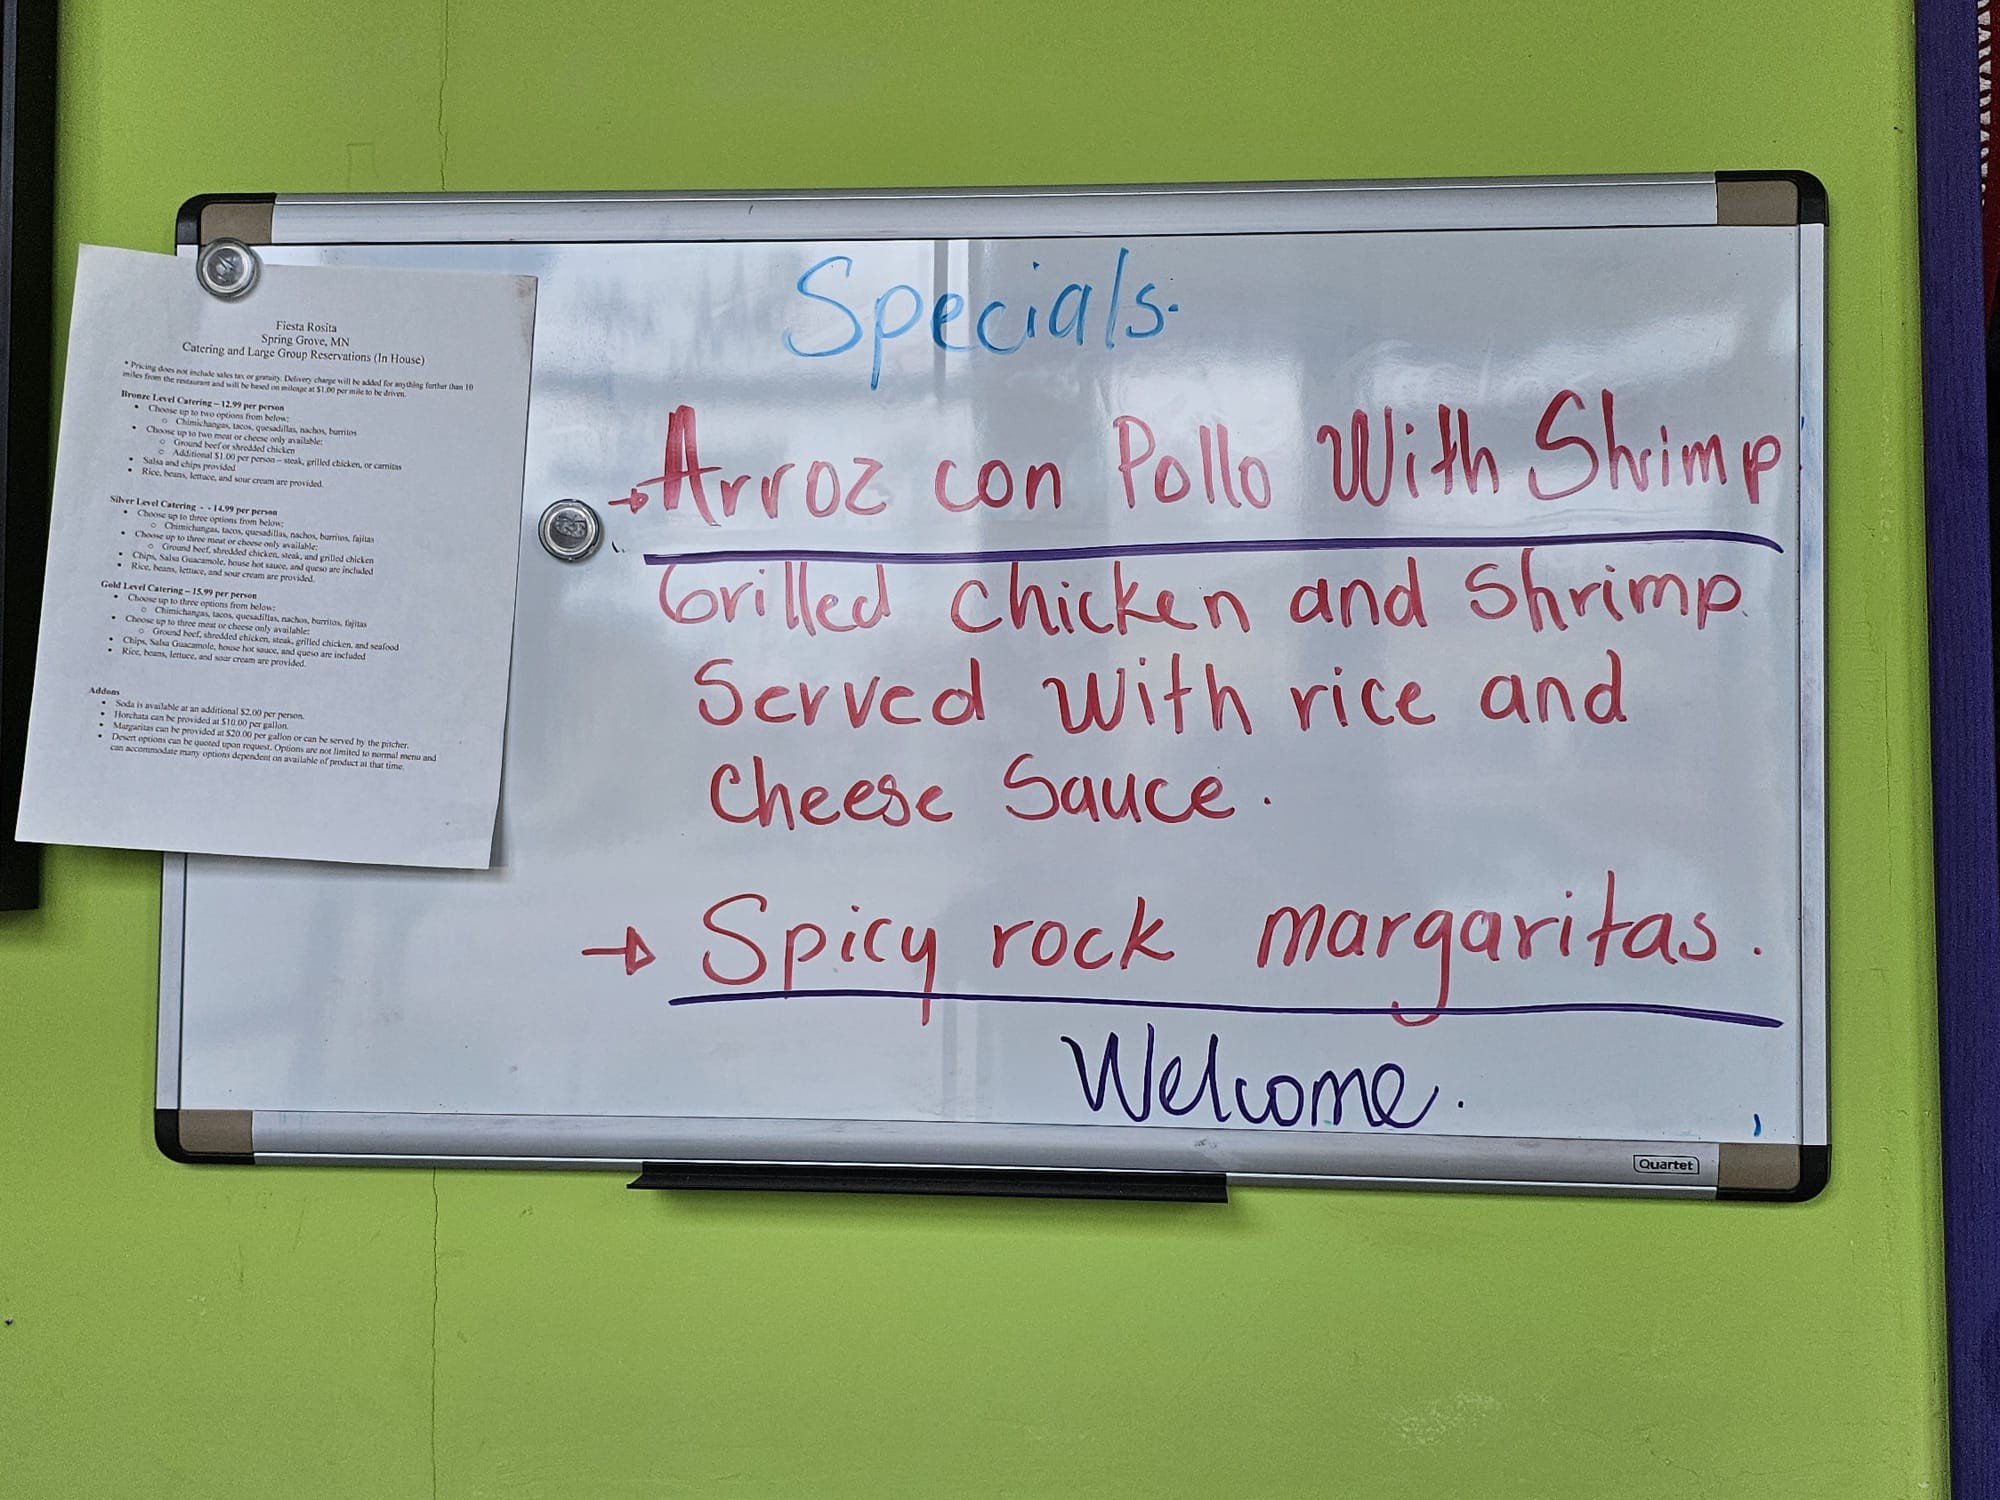 Fiesta Rosita
Spring Grove, MN
Catering and Large Group Reservations (In House)
* Pricing does not include sales tax or gratuity. Delivery charge will be added for anything further than 10
miles from the restaurant and will be based on mileage at $1.00 per mile to be driven.
Bronze Level Catering – 12.99 per person
• Choose up to two options from below:
o Chimichangas, tacos, quesadillas, nachos, burritos
• Choose up to two meat or cheese only available:
o Ground beef or shredded chicken
o Additional $1.00 per person – steak, grilled chicken, or carnitas
• Salsa and chips provided
• Rice, beans, lettuce, and sour cream are provided.
Silver Level Catering - - 14.99 per person
• Choose up to three options from below:
o Chimichangas, tacos, quesadillas, nachos, burritos, fajitas
• Choose up to three meat or cheese only available:
o Ground beef, shredded chicken, steak, and grilled chicken
• Chips, Salsa Guacamole, house hot sauce, and queso are included
• Rice, beans, lettuce, and sour cream are provided.
Gold Level Catering – 15.99 per person
• Choose up to three options from below:
o Chimichangas, tacos, quesadillas, nachos, burritos, fajitas
• Choose up to three meat or cheese only available:
o Ground beef, shredded chicken, steak, grilled chicken, and seafood
• Chips, Salsa Guacamole, house hot sauce, and queso are included
• Rice, beans, lettuce, and sour cream are provided.
Addons
• Soda is available at an additional $2.00 per person.
• Horchata can be provided at $10.00 per gallon.
• Margaritas can be provided at $20.00 per gallon or can be served by the pitcher.
• Desert options can be quoted upon request. Options are not limited to normal menu and
can accommodate many options dependent on available of product at that time.
Specials.
→ Arroz con Pollo With Shrimp
Grilled chicken and shrimp
Served with rice and
Cheese Sauce.
→ Spicy rock margaritas.
Welcome.
Quartet